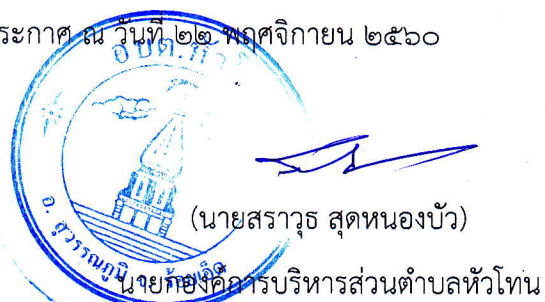 ประกาศ ณ วันที่ ๒๒ พฤศจิกายน ๒๕๖๐
อบต.หัว
อ. สุวรรณภูมิ จ. ร้อยเอ็ด
(นายสราวุธ สุดหนองบัว)
นายกองค์การบริหารส่วนตำบลหัวโทน